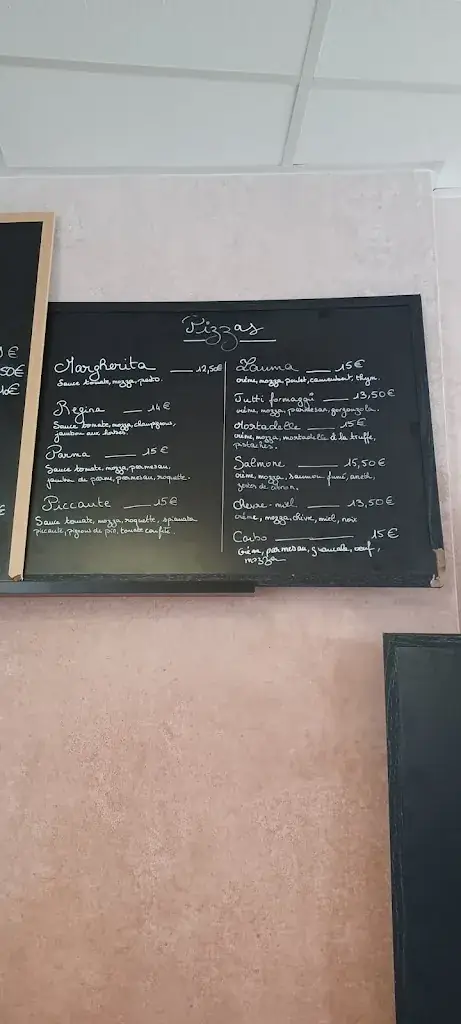 Pizzas
Margherita 12,50€
Sauce tomate, mozza, pesto.
Regina 14€
Sauce tomate, mozza, champignons,
jambon aux herbes.
Parma 15€
Sauce tomate, mozza, parmesan,
jambon de parme, parmesan, roquette.
Piccante 15€
Sauce tomate, mozza, roquette, spianata
picante, pignons de pin, tomate confite.
15€
crème, mozza, poulet, camembert, thym.
Tutti formaggi 13,50€
crème, mozza, parmesan, gorgonzola.
Mostadelle 15€
crème, mozza, mortadelle à la truffe,
pistaches.
Salmone 15,50€
crème, mozza, saumon fumé, aneth,
zestes de citron.
Chèvre-miel 13,50€
crème, mozza, chèvre, miel, noix
Carbo 15€
Crème, parmesan, guanciale, oeuf,
mozza
€
50€
€